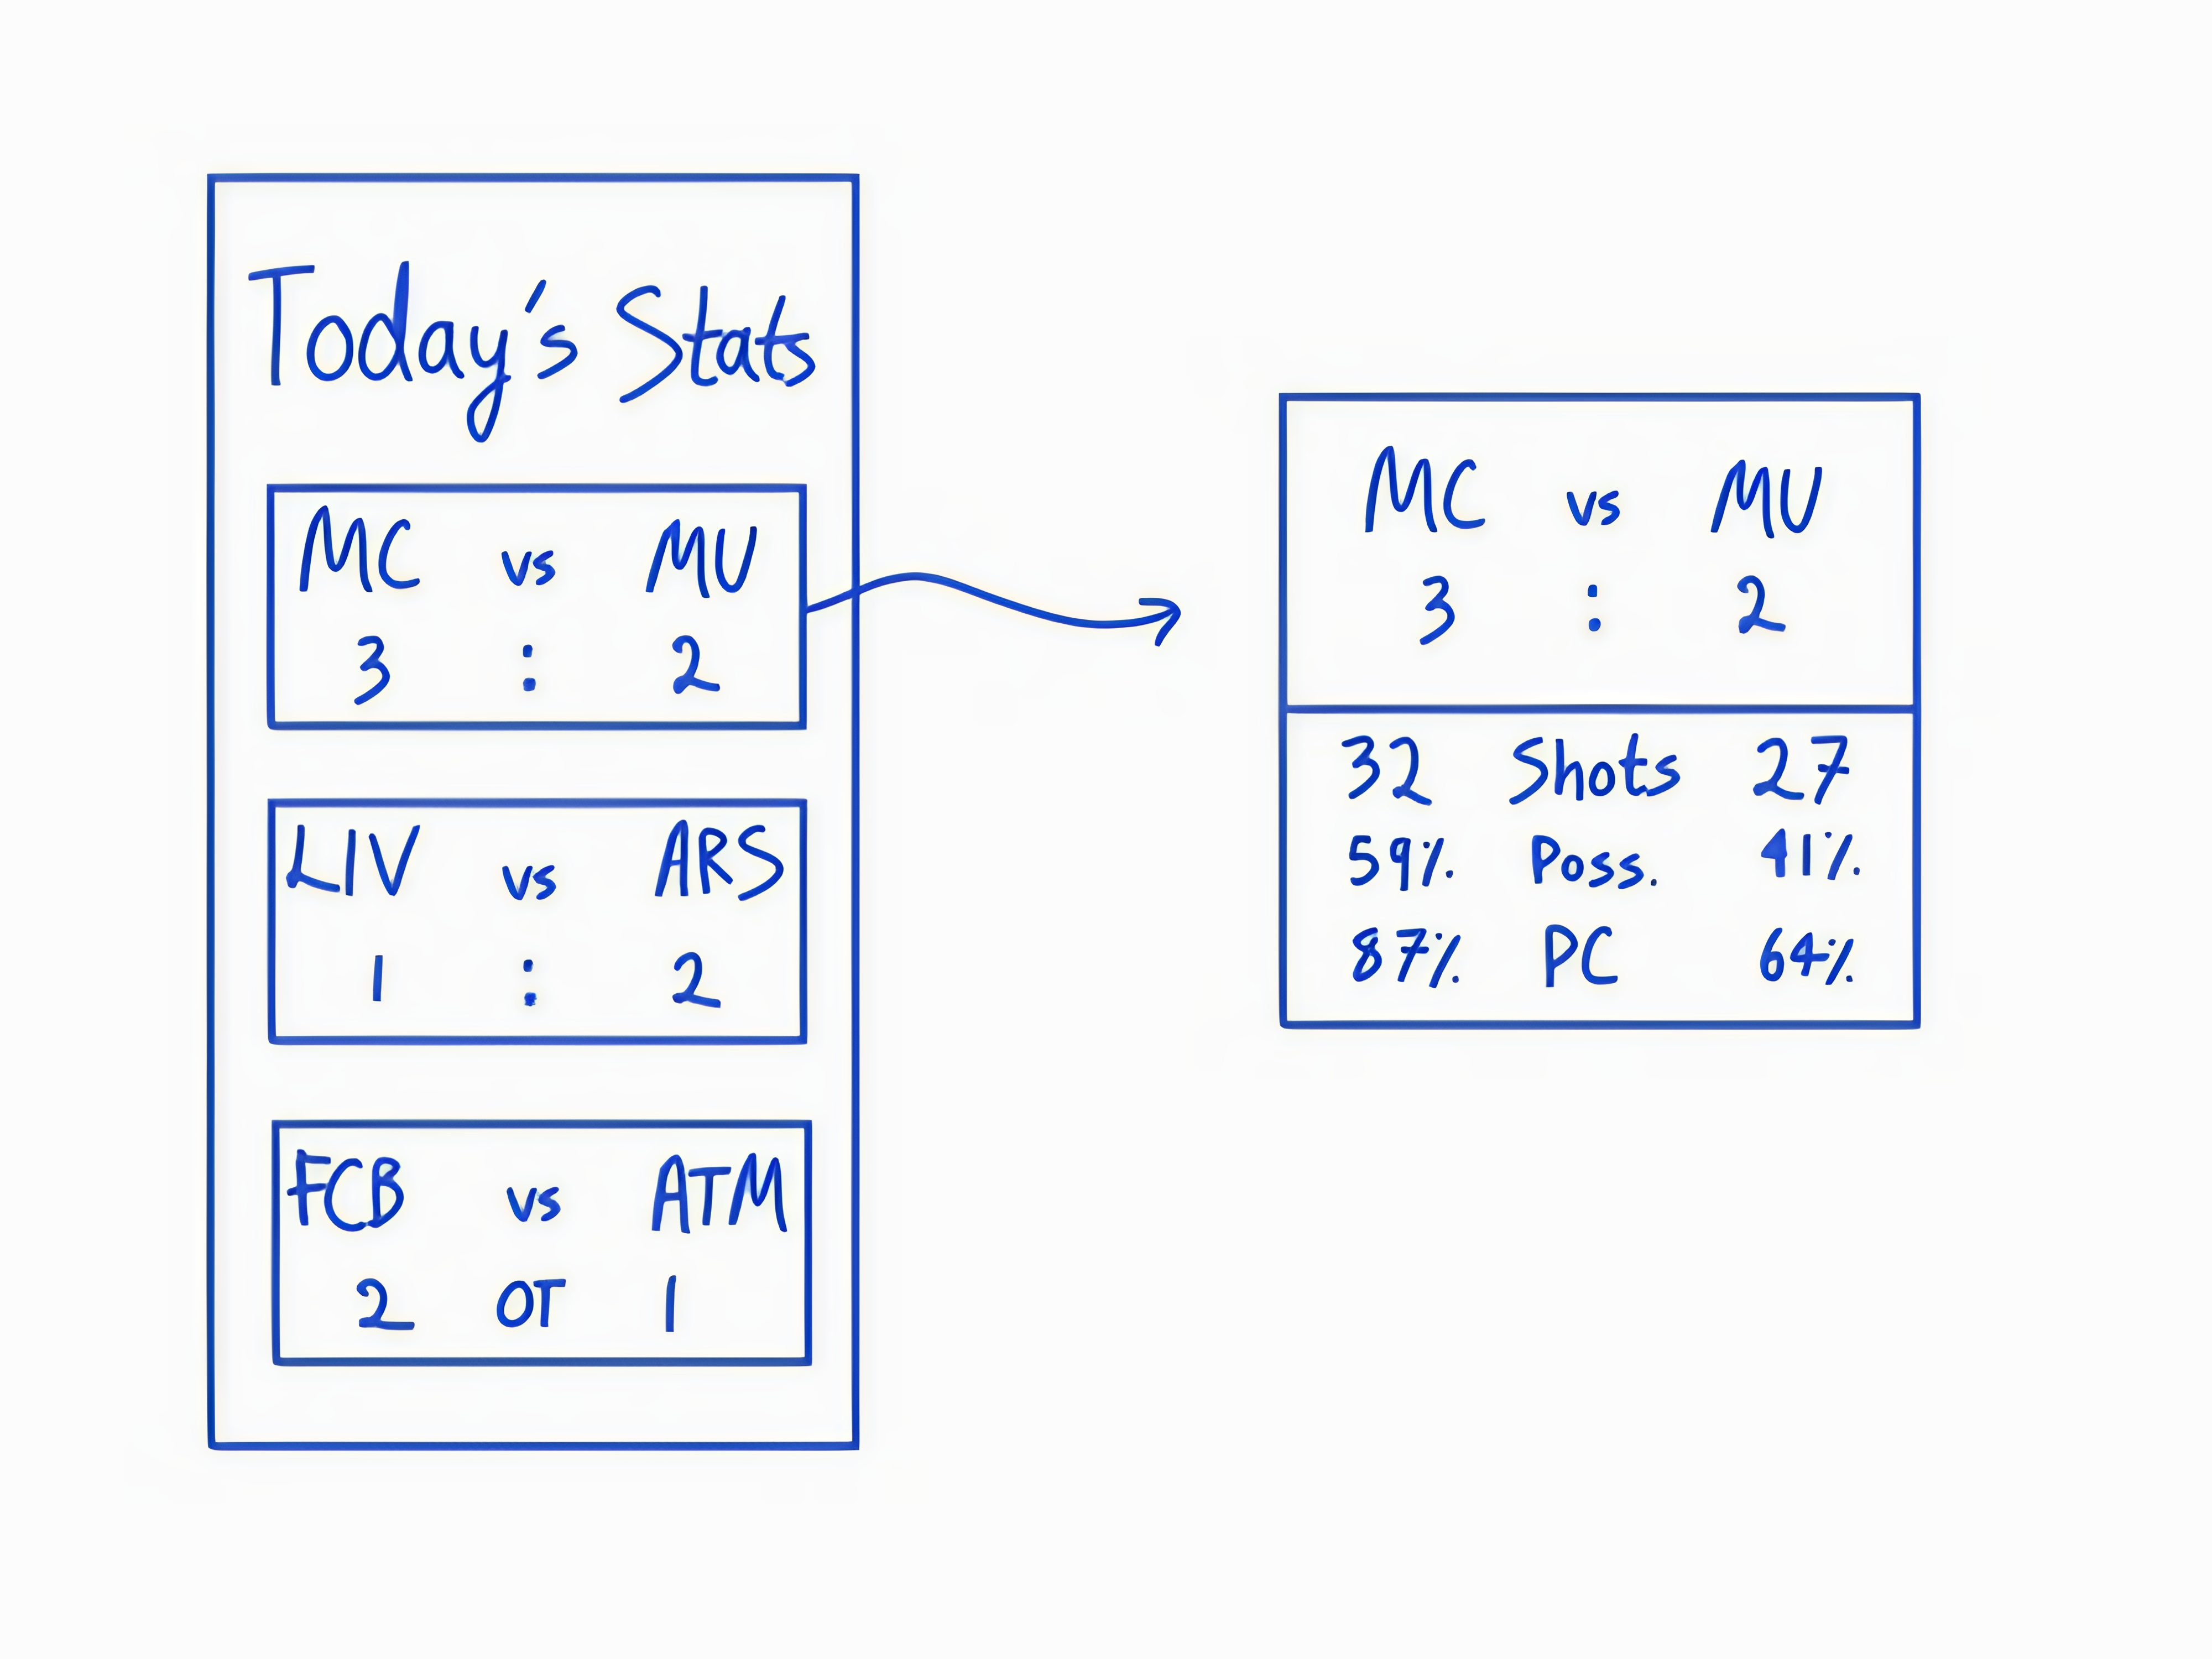 Today's Stats
MC vs MU
3 : 2
LIV vs ARS
1 : 2
FCB vs ATM
2 OT 1
MC vs MU
3 : 2
32 Shots 27
59% Poss. 41%
87% PC 64%